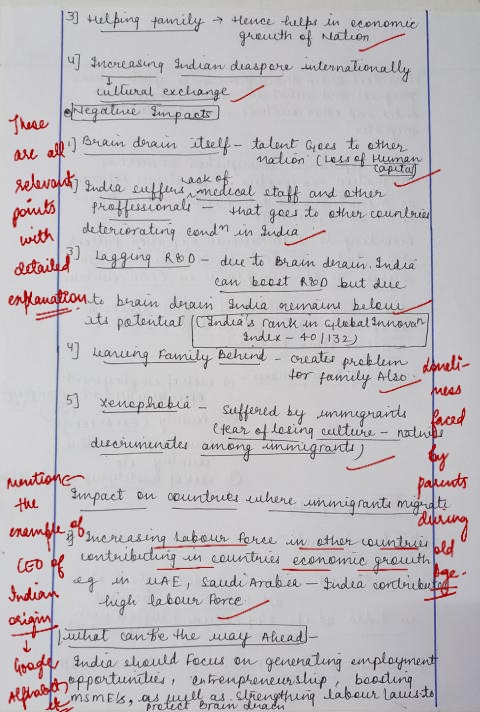 3] Helping family → Hence helps in economic
growth of Nation
4] Increasing Indian diaspore internationally
↓
cultural exchange
• Negative Impacts
1] Brain drain itself – talent Goes to other
nation (Loss of Human
Capital)
] India suffers lack of medical staff and other
proffessionals – that goes to other countries
deteriorating condn in India
3] Lagging R&D – due to Brain drain. India
can boost R&D but due
to brain drain India remains below
its potential (India's rank in Global Innovan
Index – 40/132)
4] Leaving Family Behind – creates problem
for family Also
5] Xenephobia – suffered by immigrants
(fear of losing culture – natives
discriminates among immigrants)
Impact on countries where immigrants migrate
1] Increasing Labour force in other countries
contributing in countries economic growth
eg in UAE, Saudi Arabia – India contributes
high labour force
what can be the way Ahead –
India should Focus on generating employment
opportunities, entrepreneurship, boosting
MSME's, as well as strengthing labour laws to
protect Brain drain
These
are all
relevant
points
with
detailed
explanation.
mention
the
example of
CEO of
Indian
origin
↓
Google
Alphabet,
etc
loneli-
ness
faced
by
parents
during
old
age.